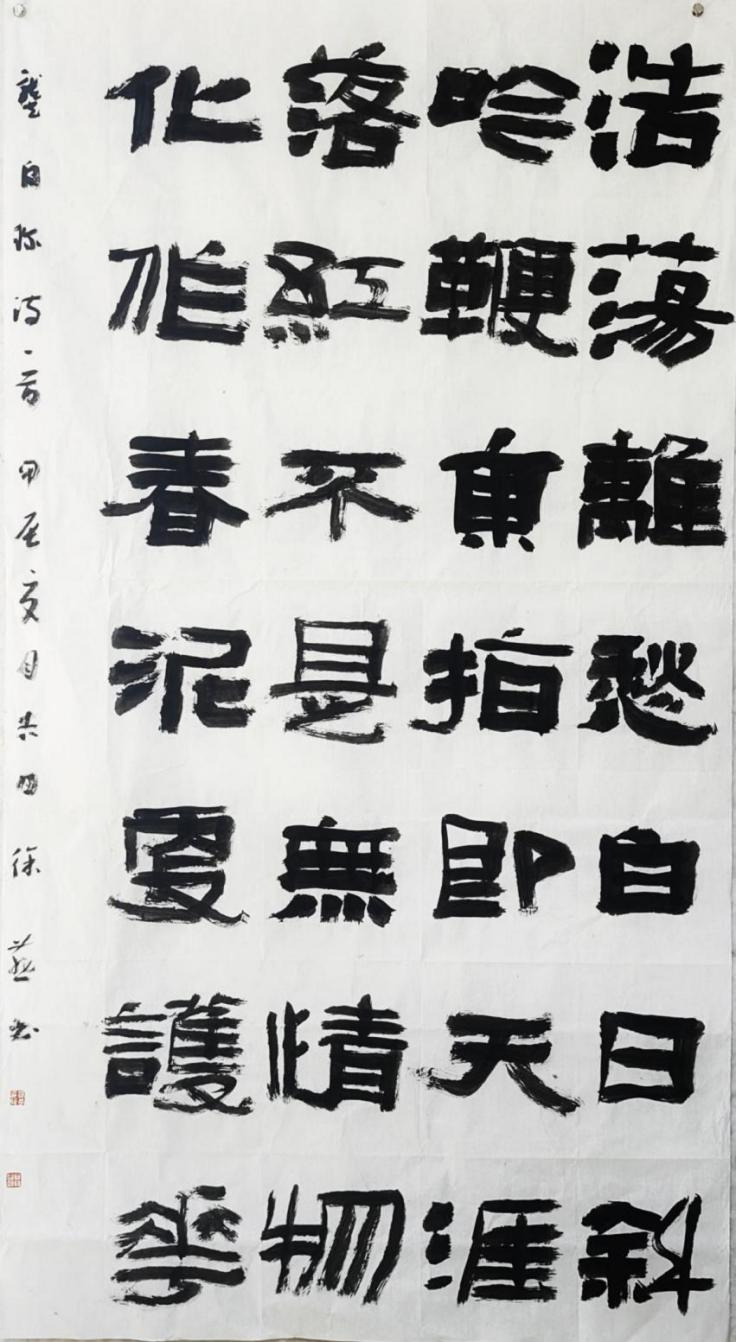 浩蕩離愁白日斜
吟鞭東指即天涯
落紅不是無情物
化作春泥更護花
龔自珍詩一首 甲辰之月 徐 書